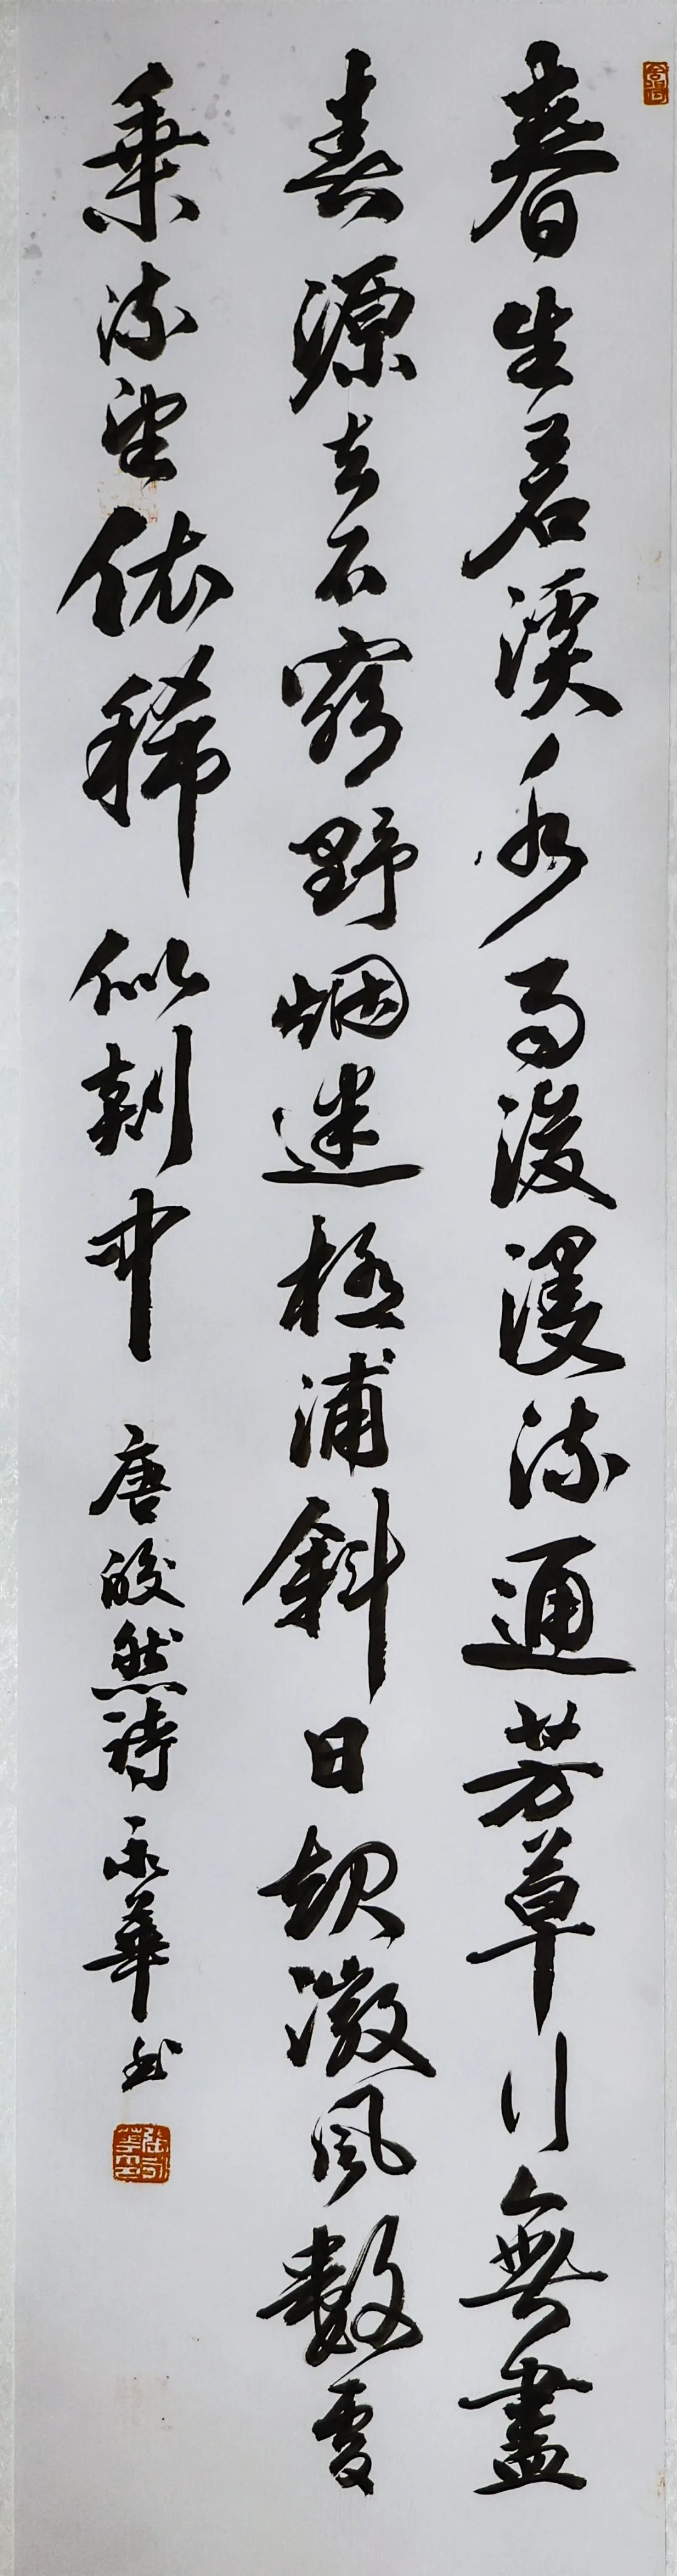 春生若溪水雨後漫流通芳草行無盡
春源去不窮野烟迷極浦斜日起微風數處
乘流望依稀似剡中 唐皎然詩 永華书